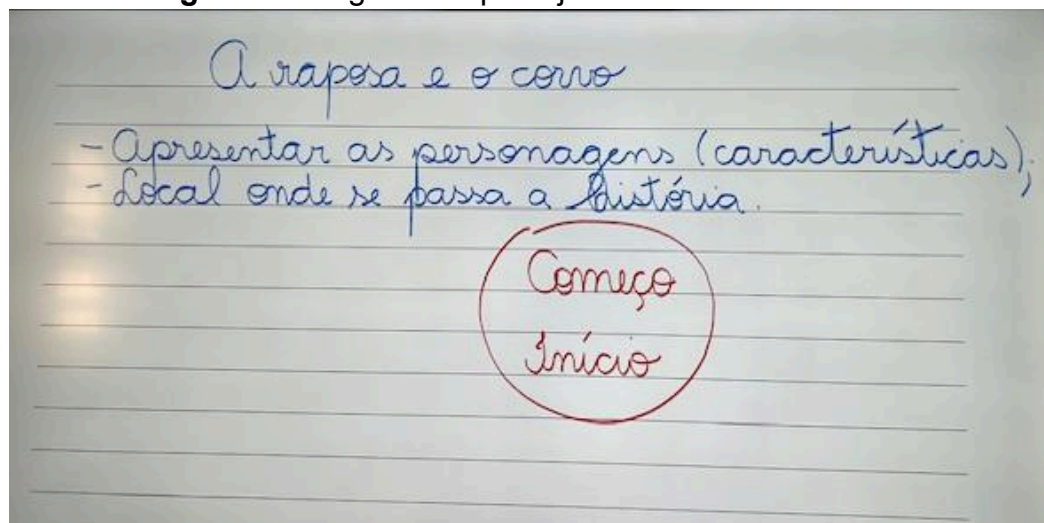 A raposa e o corvo
- Apresentar as personagens (características);
- Local onde se passa a história.
Começo
Início